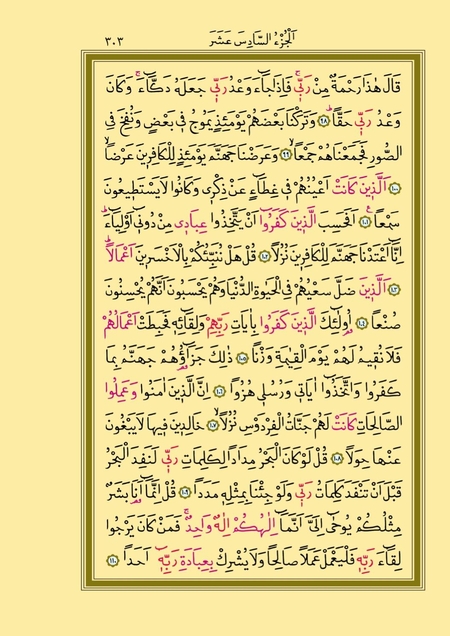 اَلْجُزْءُ السَّادِسَ عَشَرَ ٣٠٣
قَالَ هٰذَا رَحْمَةٌ مِنْ رَبّ۪يۚ فَاِذَا جَٓاءَ وَعْدُ رَبّ۪ي جَعَلَهُ دَكَّٓاءَۚ وَكَانَ
وَعْدُ رَبّ۪ي حَقًّاۜ ﴿٩٨﴾ وَتَرَكْنَا بَعْضَهُمْ يَوْمَئِذٍ يَمُوجُ ف۪ي بَعْضٍ وَنُفِخَ فِي
الصُّورِ فَجَمَعْنَاهُمْ جَمْعًاۙ ﴿٩٩﴾ وَعَرَضْنَا جَهَنَّمَ يَوْمَئِذٍ لِلْكَافِر۪ينَ عَرْضًاۙ
﴿١٠٠﴾ اَلَّذ۪ينَ كَانَتْ اَعْيُنُهُمْ ف۪ي غِطَٓاءٍ عَنْ ذِكْر۪ي وَكَانُوا لَا يَسْتَط۪يعُونَ
سَمْعًا۟ ﴿١٠١﴾ اَفَحَسِبَ الَّذ۪ينَ كَفَرُٓوا اَنْ يَتَّخِذُوا عِبَاد۪ي مِنْ دُون۪ٓي اَوْلِيَٓاءَۜ
اِنَّٓا اَعْتَدْنَا جَهَنَّمَ لِلْكَافِر۪ينَ نُزُلًا ﴿١٠٢﴾ قُلْ هَلْ نُنَبِّئُكُمْ بِالْاَخْسَر۪ينَ اَعْمَالًاۜ
﴿١٠٣﴾ اَلَّذ۪ينَ ضَلَّ سَعْيُهُمْ فِي الْحَيٰوةِ الدُّنْيَا وَهُمْ يَحْسَبُونَ اَنَّهُمْ يُحْسِنُونَ
صُنْعًا ﴿١٠٤﴾ اُو۬لٰٓئِكَ الَّذ۪ينَ كَفَرُوا بِاٰيَاتِ رَبِّهِمْ وَلِقَٓائِه۪ فَحَبِطَتْ اَعْمَالُهُمْ
فَلَا نُق۪يمُ لَهُمْ يَوْمَ الْقِيٰمَةِ وَزْنًا ﴿١٠٥﴾ ذٰلِكَ جَزَٓاؤُ۬هُمْ جَهَنَّمُ بِمَا
كَفَرُوا وَاتَّخَذُٓوا اٰيَات۪ي وَرُسُل۪ي هُزُوًا ﴿١٠٦﴾ اِنَّ الَّذ۪ينَ اٰمَنُوا وَعَمِلُوا
الصَّالِحَاتِ كَانَتْ لَهُمْ جَنَّاتُ الْفِرْدَوْسِ نُزُلًاۙ ﴿١٠٧﴾ خَالِد۪ينَ ف۪يهَا لَا يَبْغُونَ
عَنْهَا حِوَلًا ﴿١٠٨﴾ قُلْ لَوْ كَانَ الْبَحْرُ مِدَادًا لِكَلِمَاتِ رَبّ۪ي لَنَفِدَ الْبَحْرُ
قَبْلَ اَنْ تَنْفَدَ كَلِمَاتُ رَبّ۪ي وَلَوْ جِئْنَا بِمِثْلِه۪ مَدَدًا ﴿١٠٩﴾ قُلْ اِنَّمَٓا اَنَا۬ بَشَرٌ
مِثْلُكُمْ يُوحٰٓى اِلَيَّ اَنَّمَٓا اِلٰهُكُمْ اِلٰهٌ وَاحِدٌۚ فَمَنْ كَانَ يَرْجُوا
لِقَٓاءَ رَبِّه۪ فَلْيَعْمَلْ عَمَلًا صَالِحًا وَلَا يُشْرِكْ بِعِبَادَةِ رَبِّه۪ٓ اَحَدًا ﴿١١٠﴾